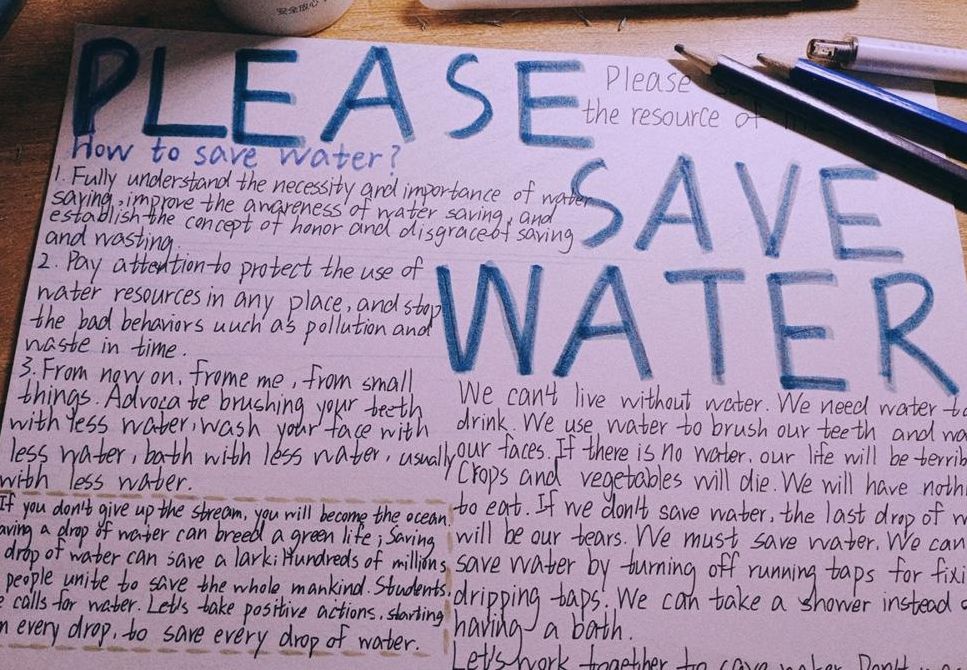 安全放心
PLEASE
Please
the resource of
SAVE
WATER
How to save water?
1. Fully understand the necessity and importance of water
saving, improve the anareness of water saving, and
establish the concept of honor and disgrace of saving
and wasting.
2. Pay attention to protect the use of
water resources in any place, and stop
the bad behaviors uuch as pollution and
waste in time.
3. From now on, frome me, from small
things. Advocate brushing your teeth
with less water, wash your face with
less water, bath with less water, usually
with less water.
If you don't give up the stream, you will become the ocean
aving a drop of water can breed a green life; Saving
drop of water can save a lark; Hundreds of millions
people unite to save the whole mankind. Students,
e calls for water. Let's take positive actions, starting
n every drop, to save every drop of water.
We can't live without water. We need water to
drink. We use water to brush our teeth and wa
our faces. If there is no water, our life will be terrib
Crops and vegetables will die. We will have nothi
to eat. If we don't save water, the last drop of w
will be our tears. We must save water. We can
save water by turning off running taps for fixi
dripping taps. We can take a shower instead o
having a bath.
Let's work together to save water. Don't